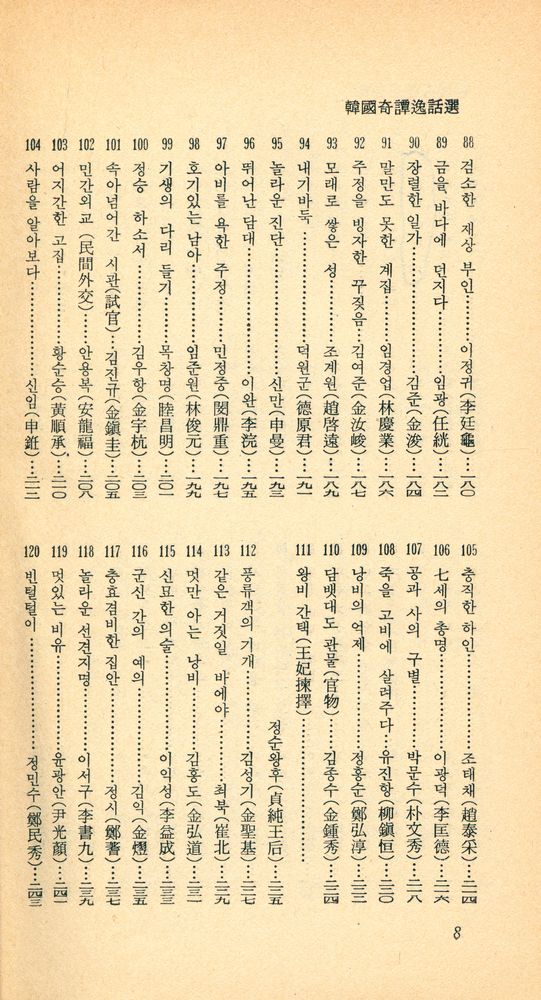 韓國奇譚逸話選
88 검소한 재상 부인……이정귀(李廷龜)…一八〇
89 금을 바다에 던지다……임광(任絖)…一八二
90 장렬한 일가……김준(金浚)…一八四
91 말만도 못한 계집……임경업(林慶業)…一八六
92 주정을 빙자한 꾸짖음…김여준(金汝峻)…一八七
93 모래로 쌓은 성……조계원(趙啓遠)…一八九
94 내기바둑……덕원군(德原君)…一九一
95 놀라운 진단……신만(申曼)…一九三
96 뛰어난 담대……이완(李浣)…一九五
97 아비를 욕한 주정……민정중(閔鼎重)…一九七
98 호기있는 남아……임준원(林俊元)…一九九
99 기생의 다리 들기……목창명(睦昌明)…二〇一
100 정승 하소서……김우항(金宇杭)…二〇三
101 속아넘어간 시관(試官)…김진규(金鎭圭)…二〇五
102 민간외교(民間外交)……안용복(安龍福)…二〇八
103 어지간한 고집……황순승(黃順承)…二一〇
104 사람을 알아보다……신임(申銋)…二一二
105 충직한 하인……조태채(趙泰采)…二一四
106 七세의 총명……이광덕(李匡德)…二一六
107 공과 사의 구별……박문수(朴文秀)…二一八
108 죽을 고비에 살려주다…유진항(柳鎭恒)…二二〇
109 낭비의 억제……정홍순(鄭弘淳)…二二二
110 담뱃대도 관물(官物)……김종수(金鍾秀)…二二四
111 왕비 간택(王妃揀擇)……
정순왕후(貞純王后)…二二五
112 풍류객의 기개……김성기(金聖基)…二二七
113 같은 거짓일 바에야……최북(崔北)…二二九
114 멋만 아는 낭비……김홍도(金弘道)…二三一
115 신묘한 의술……이익성(李益成)…二三三
116 군신 간의 예의……김익(金熤)…二三五
117 충효겸비한 집안……정시(鄭蓍)…二三七
118 놀라운 선견지명……이서구(李書九)…二三九
119 멋있는 비유……윤광안(尹光顏)…二四一
120 빈털털이……정민수(鄭民秀)…二四三
8